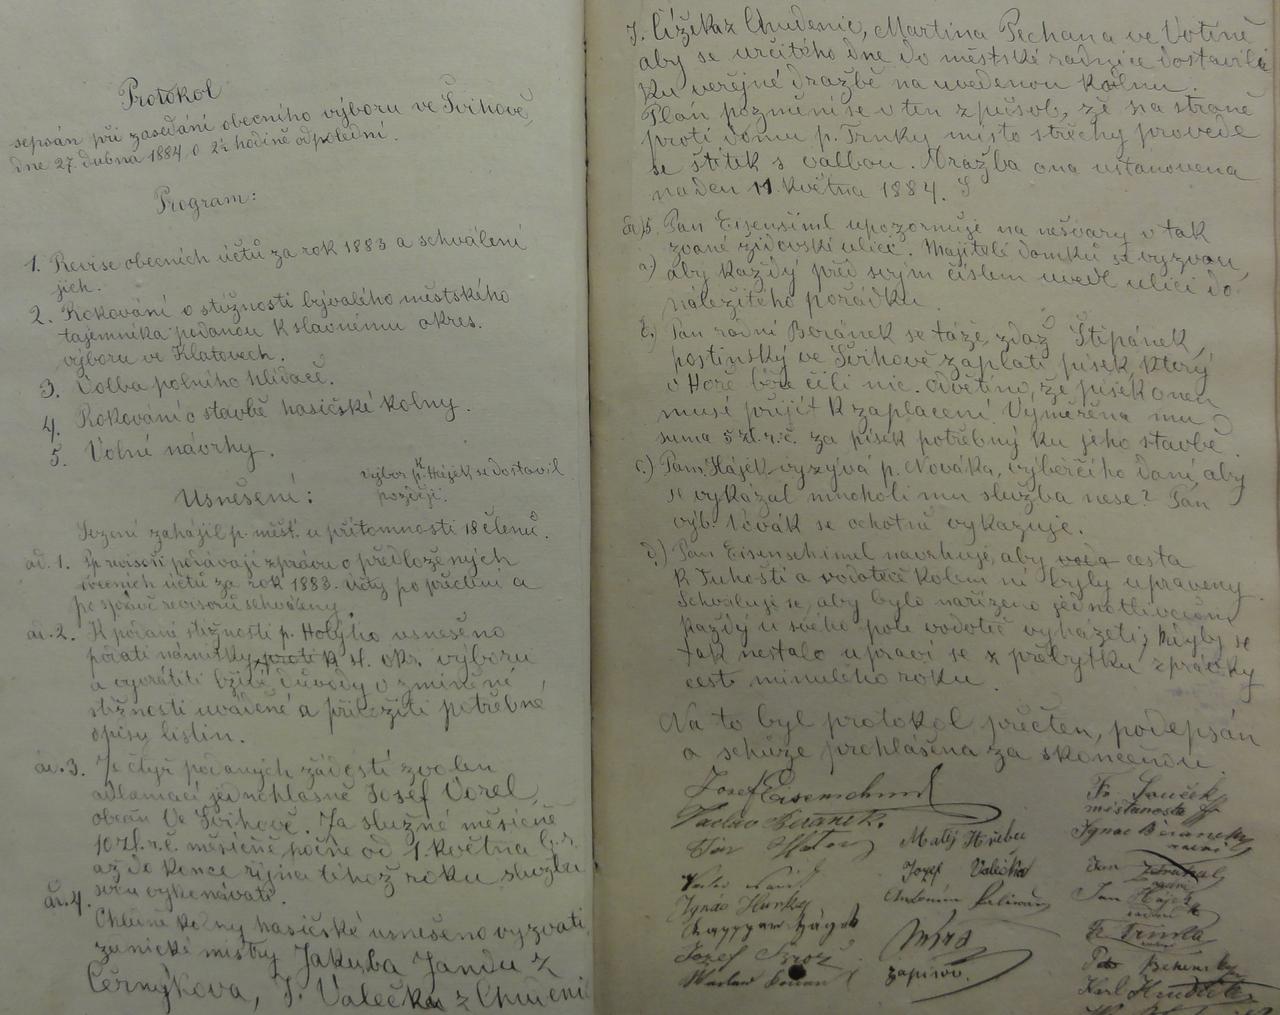 Protokol
sepsán při zasedání obecního výboru ve Švihově,
dne 27. dubna 1884 o 2½ hodině odpolední.
Program:
1. Revise obecních účtů za rok 1883 a schválení
jich.
2. Rokování o stížnosti bývalého městského
tajemníka podanou k slavnému okres.
výboru ve Klatovech.
3. Volba polního hlídače.
4. Rokování o stavbě hasičské kolny.
5. Volné návrhy.
výbor p. Hájek se dostavil
později.
Usnešení:
Sezení zahájil p. měšť. u přítomnosti 18 členů.
ad. 1. Pp. revisoři podávají zprávu o předložených
obecních účtů za rok 1883. Účty po přečtení a
po zprávě revisorů schváleny.
ad. 2. K podané stížnosti p. Holého usnešeno
podati námitky proti k sl. okr. výboru
a vyvrátiti lživé důvody v zmíněné
stížnosti uváděné a přiložiti potřebné
opisy listin.
ad. 3. Ze čtyř podaných žádostí zvolen
aklamací jednohlasně Josef Vorel,
občan ve Švihově. Za služné měsíčně
10 zl. r.č. měsíčně, počne od 1. května b.r.
až do konce října téhož roku službu
svou vykonávati.
ad. 4. Ohledně kolny hasičské usnešeno vyzvati
zednické mistry Jakuba Jandu z
Černýkova, J. Valečka z Chudenic
J. Čížka z Chudenic, Martina Pechana ve Votíně
aby se určitého dne do městské radnice dostavili
ku veřejné dražbě na uvedenou kolnu.
Plán pozmění se v ten způsob, že na straně
proti domu p. Trnky místo střechy provede
se štítek s valbou. Dražba ona ustanovena
na den 11 května 1884.
ad 5. Pan Eisenšiml upozornuje na nešvary v tak
zvané židovské ulici. Majitelé domků se vyzvou,
a) aby každý před svým číslem uvedl ulici do
náležitého pořádku.
b.) Pan radní Beránek se táže, zdaž Štipánek,
hostinský ve Švihově zaplatí písek, který
v Hoře béře čili nic. Odvětíno, že písek onen
musí přijít k zaplacení. Vyměřena mu
suma 5 zl. r.č. za písek potřebný ku jeho stavbě.
c.) Pan Hájek vyzývá p. Nováka, výběrčího daní, aby
se vykázal mnoholi mu služba nese? Pan
výb. Novák se ochotně vykazuje.
d.) Pan Eisenschiml navrhuje, aby voda cesta
k Tuhošti a vodoteče kolem ní byly upraveny.
Schvaluje se, aby bylo nařízeno jednotlivcům,
každý u svého pole vodoteč vyházeti; kdyby se
tak nestalo upraví se z přebytku zprávky
cest minulého roku.
Na to byl protokol přečten, podepsán
a schůze prohlášena za skončenou.
Josef Eisenschiml
Václav Beránek.
Ignác Hurka
Josef Brož
Matěj Hřebec
Jozef Valečka
Antonín
zapisov.
Fr. Souček
měšťanosta
Ignac Beránek
radní
Jan
radní
Jan Hájek
radní
Fr. Trnka
Karl